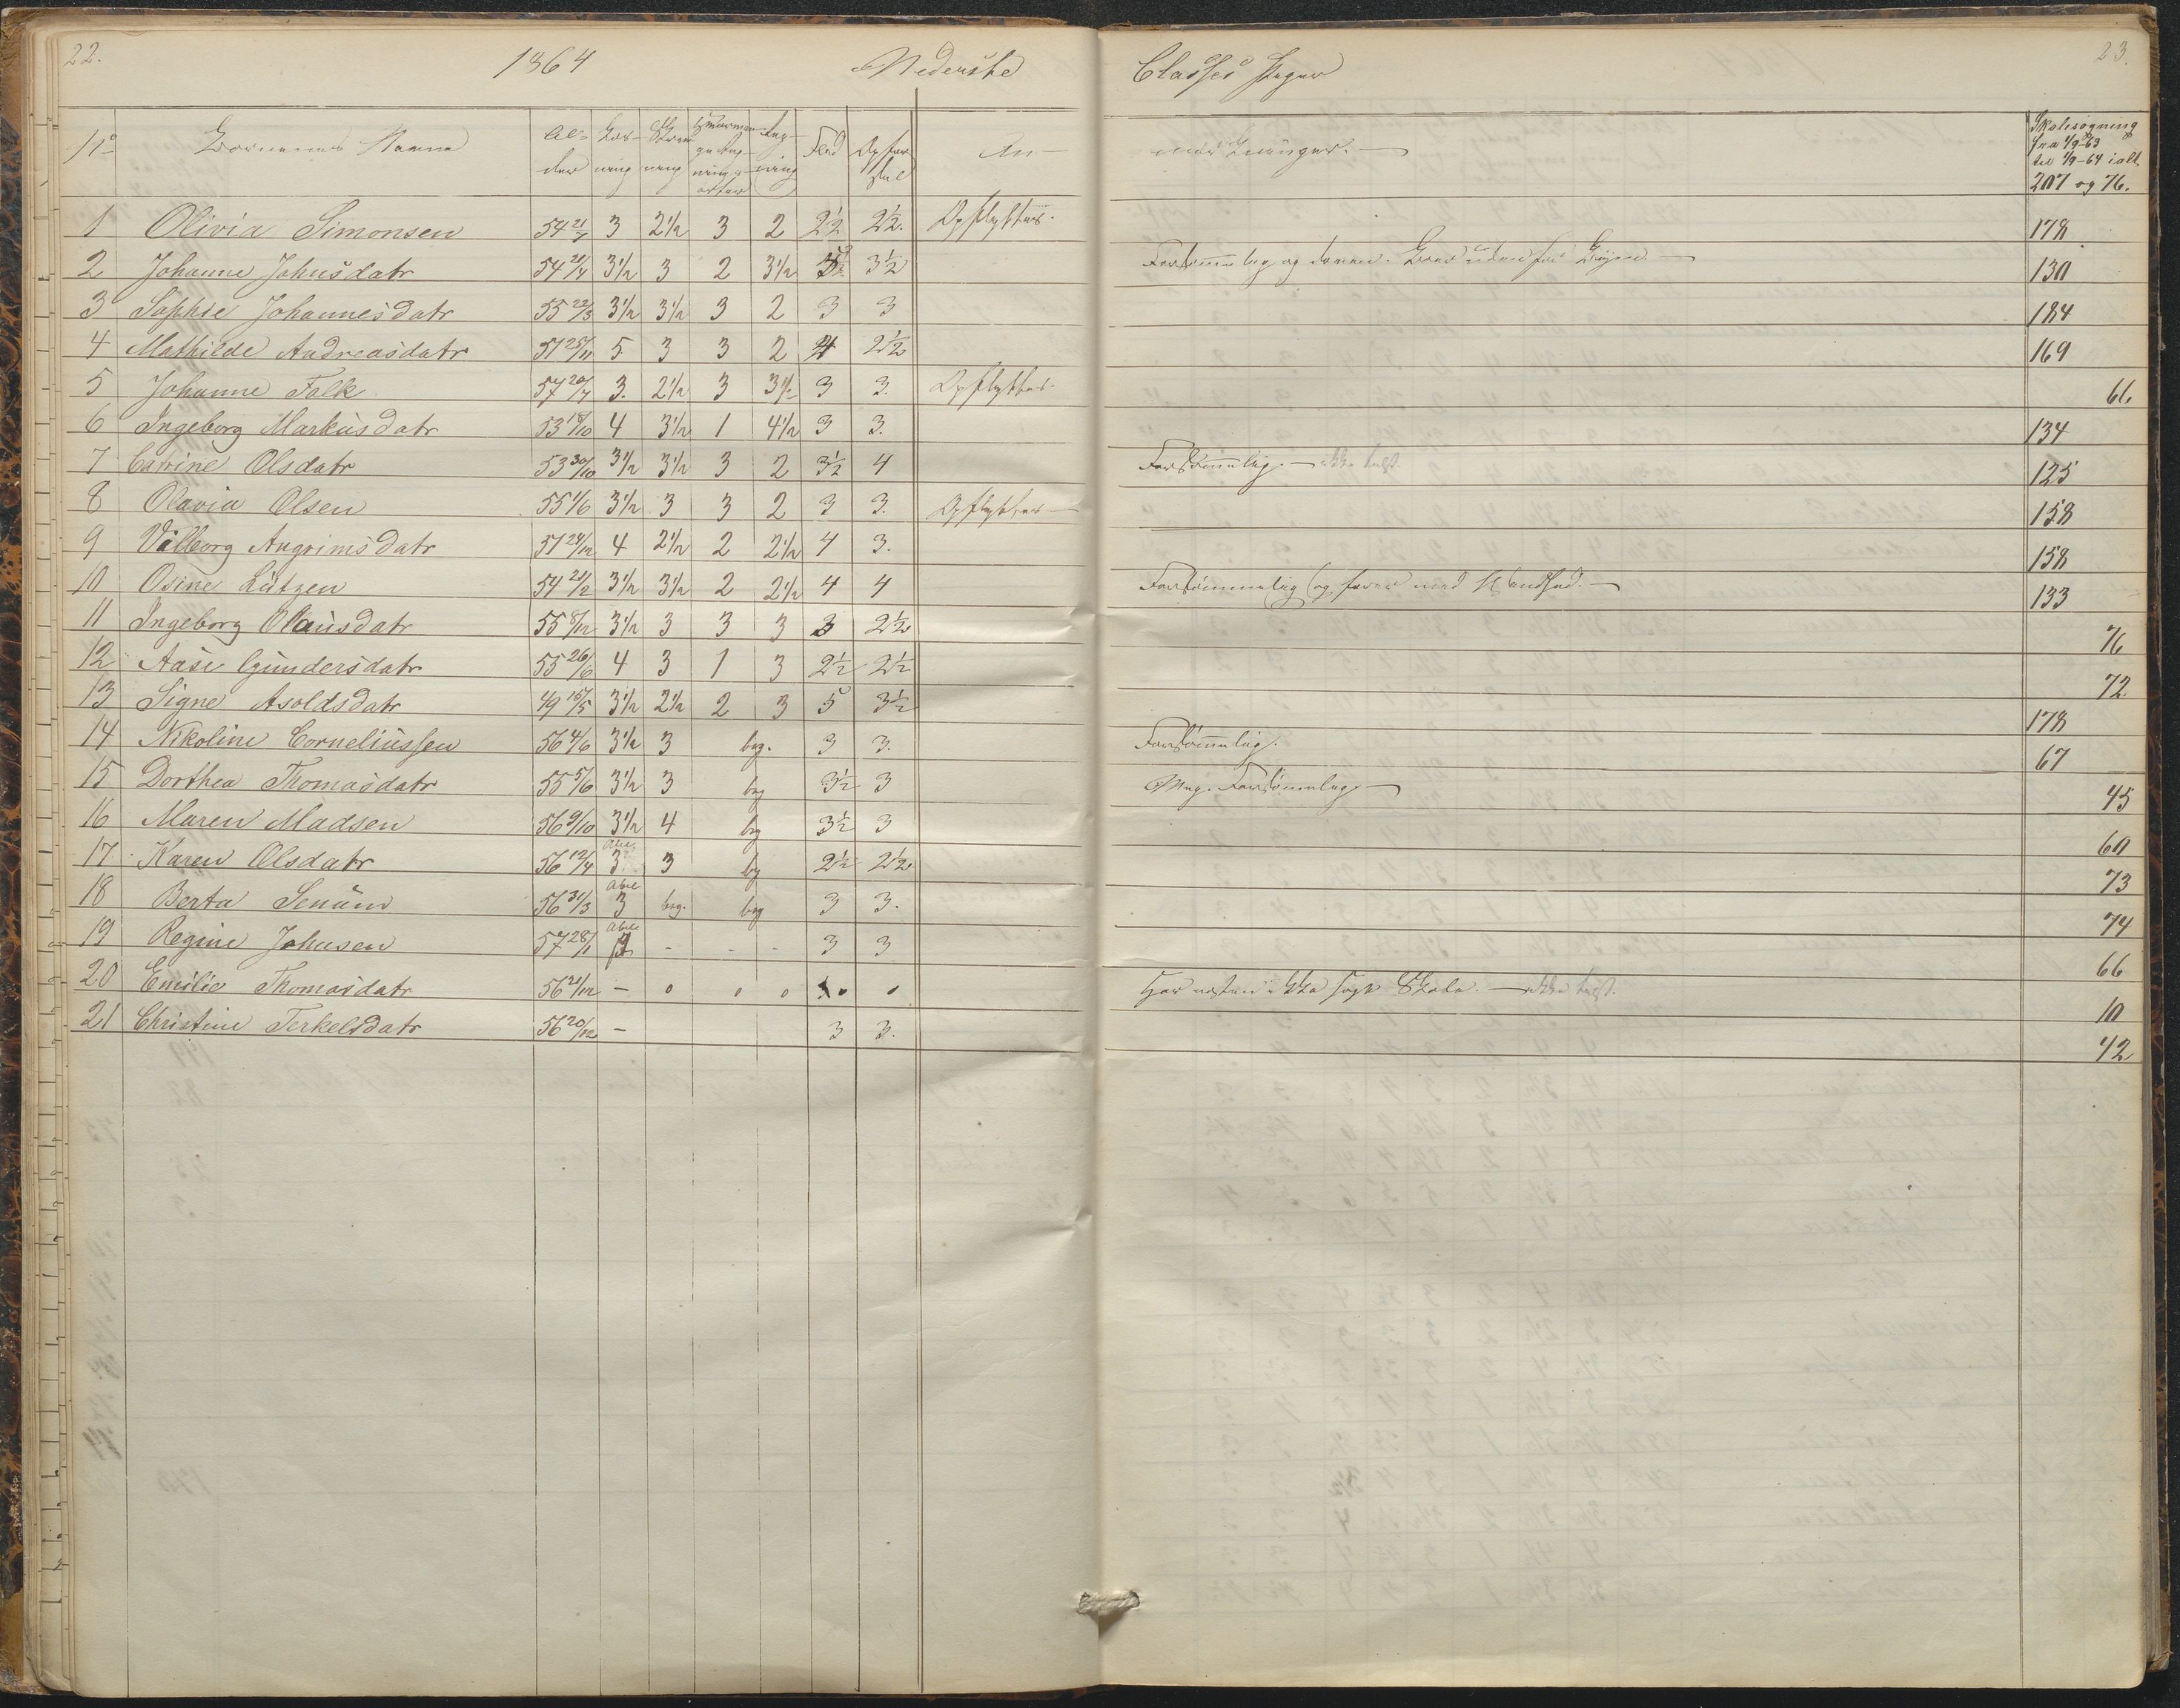 22. 1864 Nederste Classes Piger 23.
No Børnenes Navne Al-der Læs-ning Skrivning Udenads Reg-ning Flid Opførsel An-mærkninger. Skolesøgning fra 1/9-63 til 1/9-64 ialt 207 og 76.
1 Olivia Simonsen 54 21/7 3 2½ 3 2 2½ 2½. Opflyttes. 178
2 Johanne Johnsdatr 54 21/4 3½ 3 2 3½ 3½ Forsømmelig og doven. 130
3 Sophie Johannesdatr 55 22/3 3½ 3½ 3 2 3 3 184
4 Mathilde Andreasdatr 51 25/11 5 3 3 2 4 2½ 169
5 Johanne Falk 57 20/7 3. 2½ 3 3½ 3 3. Opflyttes. 66
6 Ingeborg Markusdatr 53 18/10 4 3½ 1 4½ 3 3. 134
7 Catrine Olsdatr 53 30/10 3½ 3½ 3 2 3½ 4 Forsømmelig. 125
8 Olavia Olsen 55 1/6 3½ 3 3 2 3 3. Opflyttes 158
9 Valborg Angrimsdatr 51 24/12 4 2½ 2 2½ 4 3. 158
10 Osine Lützen 54 21/2 3½ 3½ 2 2½ 4 4 Forsømmelig 133
11 Ingeborg Olausdatr 55 8/12 3½ 3 3 3 3 2½ 76
12 Aase Gundersdatr 55 26/6 4 3 1 3 2½ 2½ 72
13 Signe Asoldsdatr 49 15/5 3½ 2½ 2 3 5 3½ 178
14 Nikoline Corneliussen 56 4/6 3½ 3 beg. 3 3. Forsømmelig. 67
15 Dorthea Thomasdatr 55 5/6 3½ 3 beg 3½ 3 Meg. Forsømmelig. 45
16 Maren Madsen 56 9/10 3½ 4 beg 3½ 3 60
17 Karen Olsdatr 56 12/4 Abc 3 3 beg 2½ 2½ 73
18 Berta Senum 56 31/3 Abc 3 beg. beg 3 3. 74
19 Regine Johnsen 57 28/1 Abc - - - 3 3 66
20 Emilie Thomasdatr 56 21/12 - 0 0 0 Har næsten ikke søgt Skole. 10
21 Christine Terkelsdatr 56 20/12 - 3 3. 42